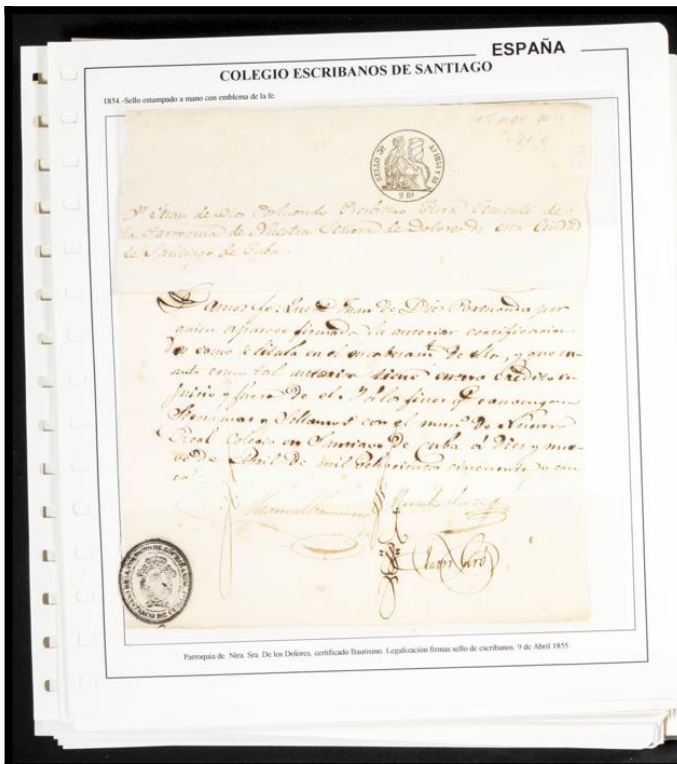 ESPAÑA
COLEGIO ESCRIBANOS DE SANTIAGO
1854.-Sello estampado a mano con emblema de la fe.
SELLO 3º AÑOS 1854 Y 55
2 Rl
Dn. Juan de Dios Portuondo Presbitero Cura Teniente de
la Parroquia de Nuestra Señora de Dolores de esta Ciudad
de Santiago de Cuba.
Damos fe: Que Dn. Juan de Dios Portuondo por
quien aparece firmada la anterior certificacion
es como se titula en el de ella, y que
como tal tiene entero credito en
juicio y fuera de el. Y a los fines qe. convengan
Signamos y Sellamos con el mismo de Nuestro
Real Colegio en Santiago de Cuba á diez y nue-
ve de Abril de mil ochocientos cincuenta y cin-
co.
Parroquia de Ntra. Sra. De los Dolores, certificado Bautismo. Legalización firmas sello de escribanos. 9 de Abril 1855